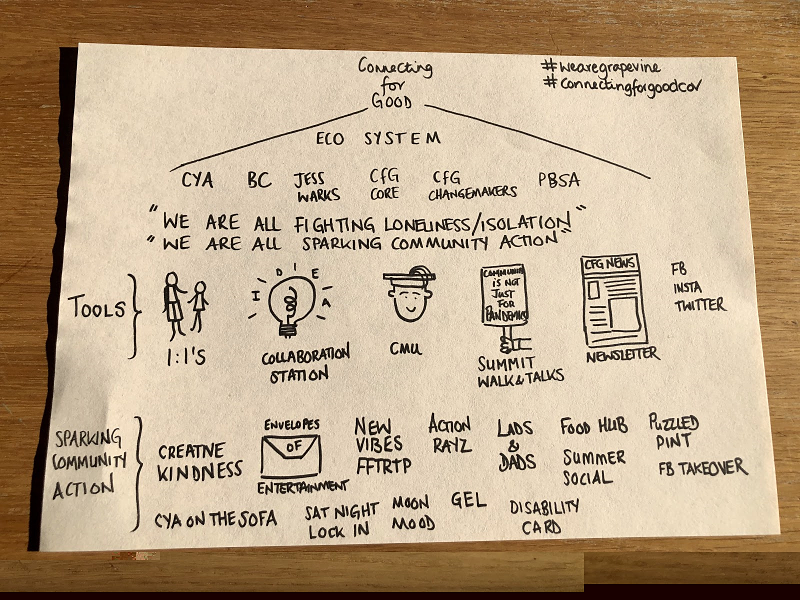 Connecting
for
GOOD
#wearegrapevine
#connectingforgoodcov
ECO SYSTEM
CYA
BC
JESS
WARKS
CfG
CORE
CfG
CHANGEMAKERS
PBSA
"WE ARE ALL FIGHTING LONELINESS/ISOLATION"
"WE ARE ALL SPARKING COMMUNITY ACTION"
TOOLS
1:1'S
IDEA
COLLABORATION
STATION
CMU
COMMUNITY
IS NOT
JUST
FOR
PANDEMICS
SUMMIT
WALK & TALKS
CFG NEWS
NEWSLETTER
FB
INSTA
TWITTER
SPARKING
COMMUNITY
ACTION
CREATIVE
KINDNESS
ENVELOPES
OF
ENTERTAINMENT
NEW
VIBES
FFTRTP
ACTION
RAYZ
LADS
&
DADS
FOOD HUB
SUMMER
SOCIAL
PUZZLED
PINT
FB TAKEOVER
CYA ON THE SOFA
SAT NIGHT
LOCK IN
MOON
MOOD
GEL
DISABILITY
CARD